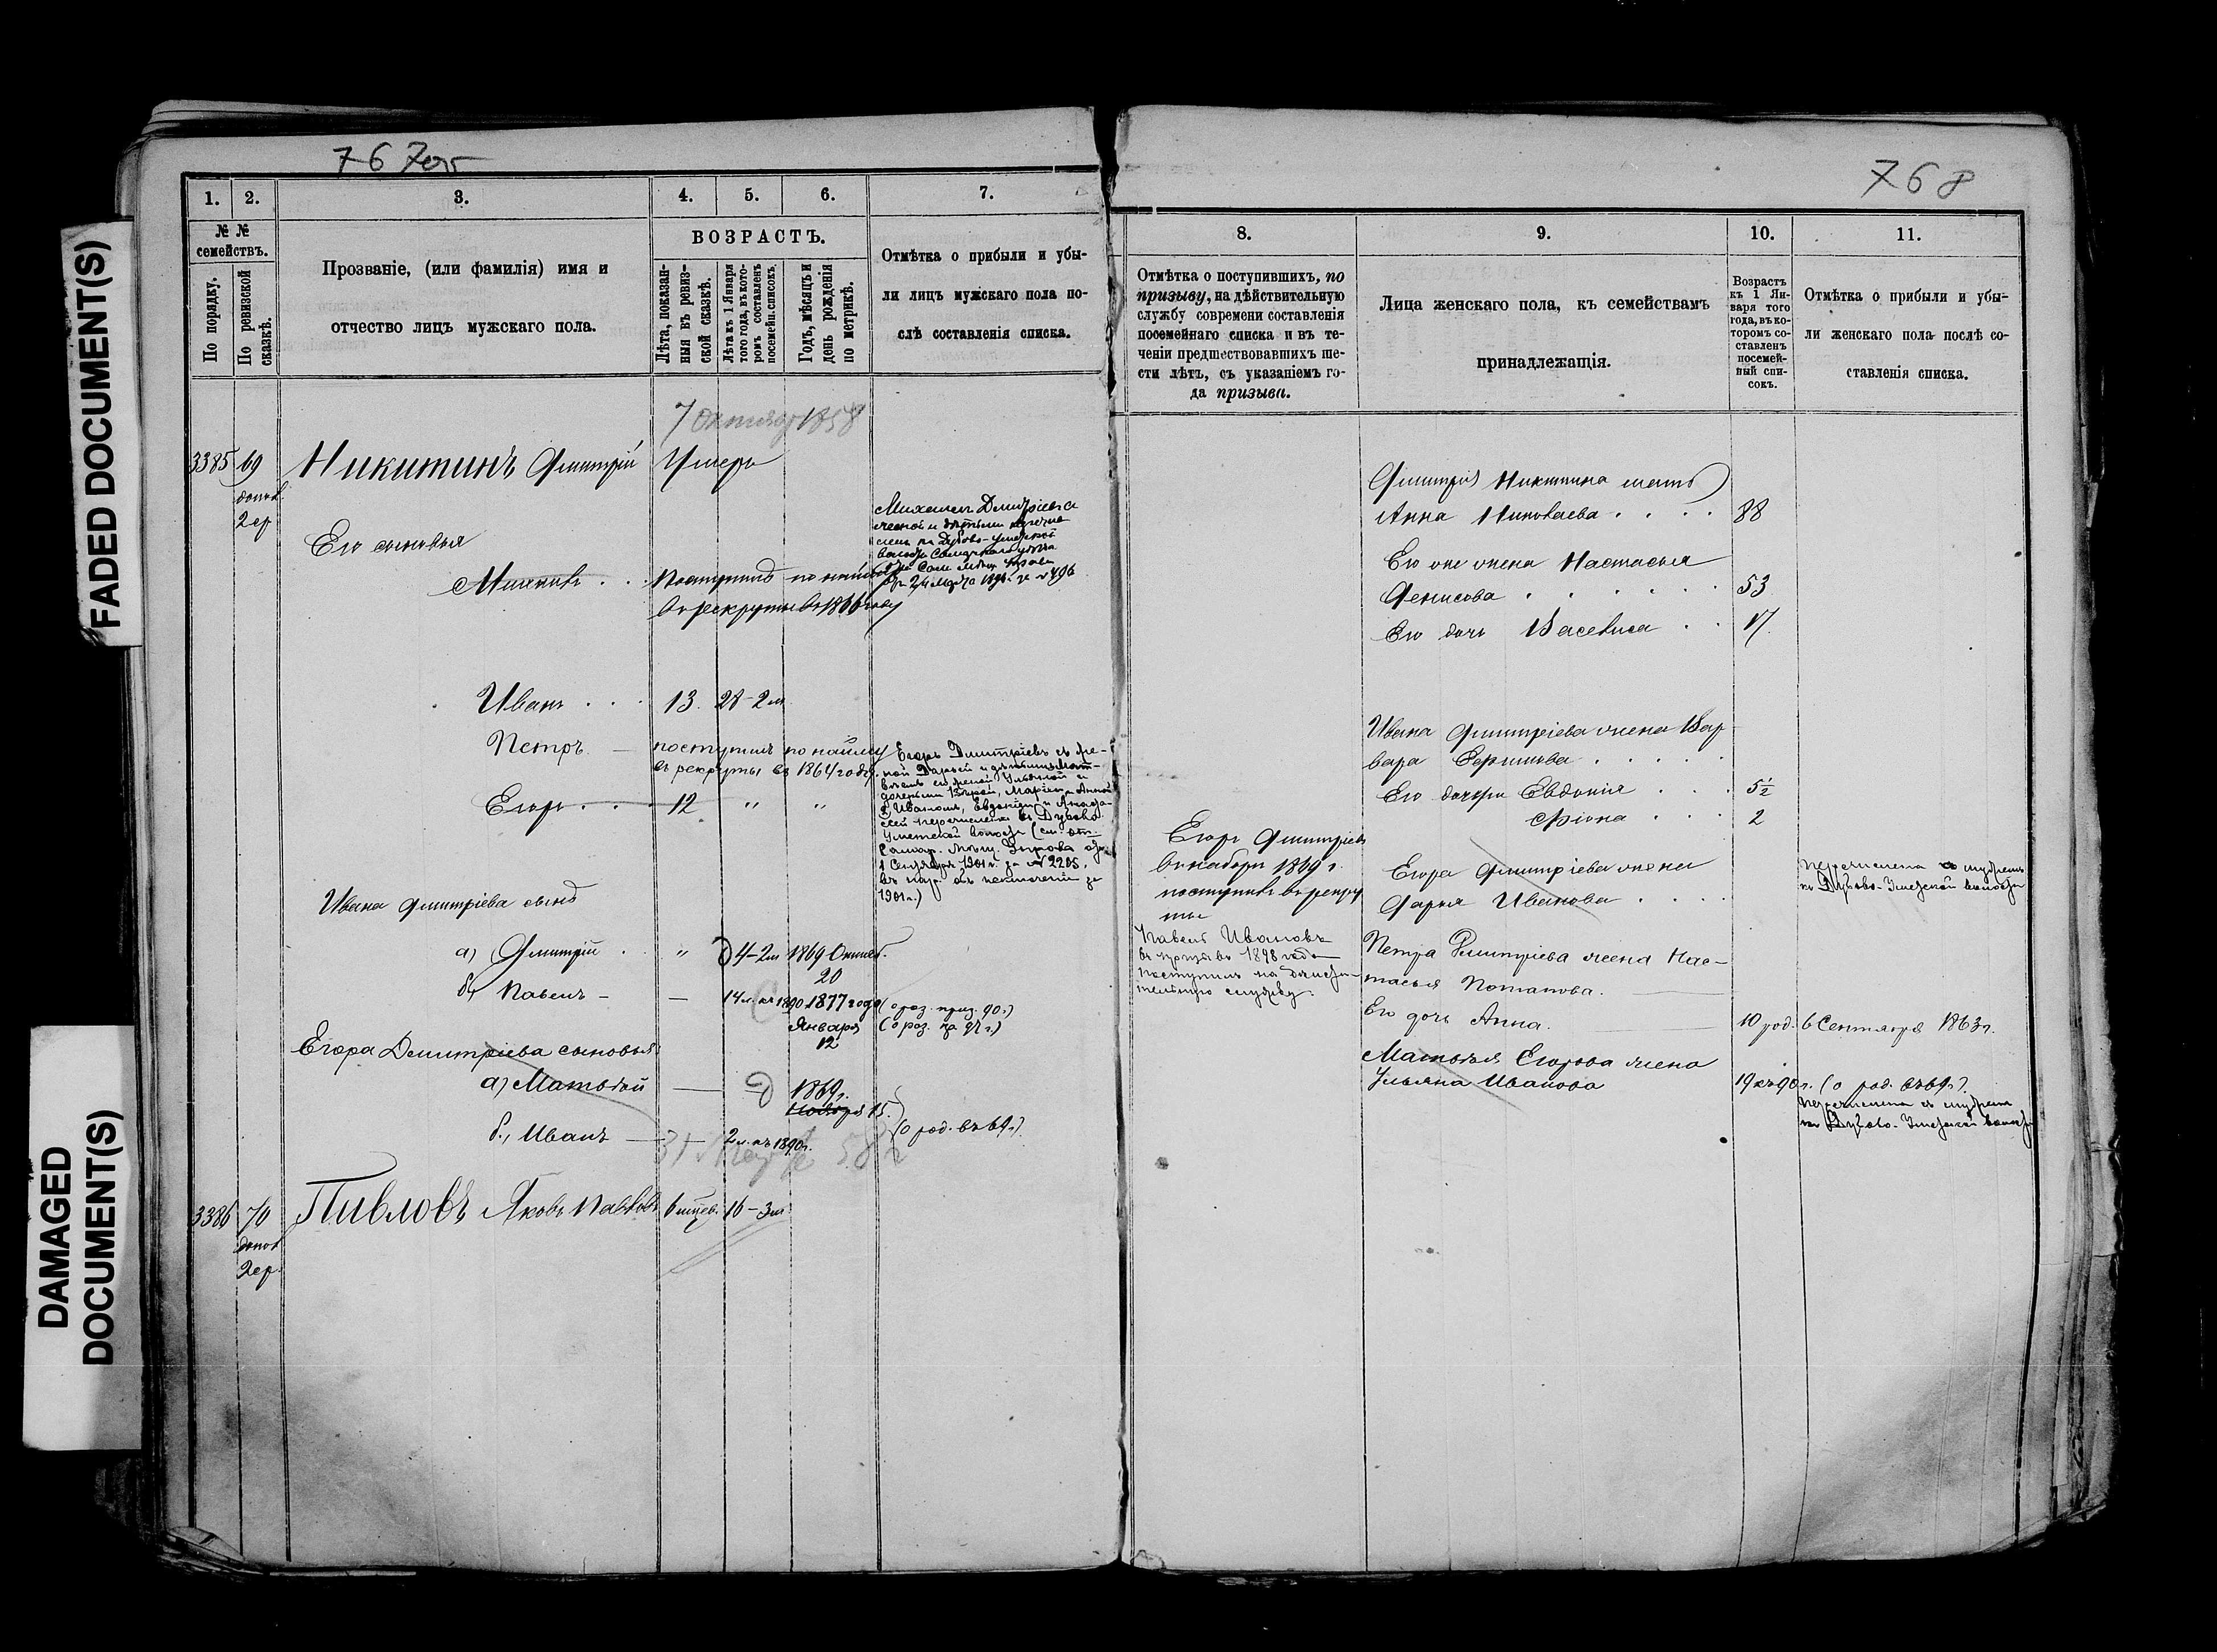 767об
768
FADED DOCUMENT(S)
DAMAGED
DOCUMENT(S)
1. 2. 3. 4. 5. 6. 7.
№ №
семействъ.
По порядку.
По ревизской
сказкѣ.
Прозваніе, (или фамилія) имя и
отчество лицъ мужскаго пола.
ВОЗРАСТЪ.
Лѣта, показан-
ныя въ ревиз-
ской сказкѣ.
Лѣта къ 1 Января
того года, въ кото-
ромъ составленъ
посемейн. списокъ.
Годъ, мѣсяцъ и
день рожденія
по метрикѣ.
Отмѣтка о прибыли и убы-
ли лицъ мужскаго пола по-
слѣ составленія списка.
7 Октября 1858
3385 69 Никитинъ Дмитрій Умеръ
допол.
2ср
Его сыновья
Михаилъ . . Поступилъ по найму
въ рекруты въ 1866 году
Михаилъ Дмитріевъ съ
женой и дѣтьми перечис
ленъ въ Дубово-Уметской
волости Самарскаго уѣзда
24 Марта № 496
Иванъ . . . 13. 28-2м
Петръ — поступилъ по найму
въ рекруты въ 1864 году.
Егоръ . . 12 " "
Егоръ Дмитріевъ съ же-
ной Дарьей и дѣтьми Мат-
вѣемъ его женой Ульяной и
дочерьми Вѣрой, Маріей, Анной
Иваномъ, Евдокіей и Анаста-
сіей перечислены въ Дубово
Уметской волости (см. отн.
Самар. Мѣщ. Управы отъ
1 Сентября 1901 г. за № 2205,
1901 г.)
Ивана Дмитріева сынъ
а) Дмитрій . " 4-2м 1869 Октяб.
20
б, Павелъ - — 14 л. къ 1890. 1877 года (о роз. приз. 90.)
Января (о роз. за 92 г.)
12
Егора Дмитріева сыновья:
а) Матвѣй — 1869 г.
Ноября 15.
б., Иванъ — 2 л. къ 1890 г. (о род. въ 69 г.)
3386 70 Павловъ Яковъ Павловъ 6 мѣсв. 16-3м
допол
2ср.
8. 9. 10. 11.
Отмѣтка о поступившихъ, по
призыву, на дѣйствительную
службу современи составленія
посемейнаго списка и въ те-
ченіи предшествовавшихъ ше-
сти лѣтъ, съ указаніемъ го-
да призыва.
Лица женскаго пола, къ семействамъ
принадлежащія.
Возрастъ
къ 1 Ян-
варя того
года, въ ко-
торомъ со-
ставленъ
посемей-
ный спи-
сокъ.
Отмѣтка о прибыли и убы-
ли женскаго пола послѣ со-
ставленія списка.
Дмитрія Никитина мать
Анна Николаева . . . . 88
Его же жена Настасья
Денисова . . . . . . 53
Его дочь Василиса . . 17.
Ивана Дмитріева жена Вар-
вара Сергеева . . . . .
Его дочери Евдокія . . . 5½
Фіона . . . 2
Егоръ Дмитріевъ
въ наборъ 1869 г.
поступилъ въ рекру
ты
Егора Дмитріева жена
Дарья Иванова . . . .
перечислена съ мужемъ
въ Дубово-Уметской волости
Павелъ Ивановъ
въ призывъ 1898 года
поступилъ на дѣйстви-
тельную службу.
Петра Дмитріева жена Нас-
тасья Потапова.
Его дочь Анна. 10 род. 6 Сентября 1863 г.
Матвѣя Егорова жена
Ульяна Иванова 19 къ 90 г. (о род. въ 69.)
перечислена съ мужемъ
въ Дубово-Уметской волости